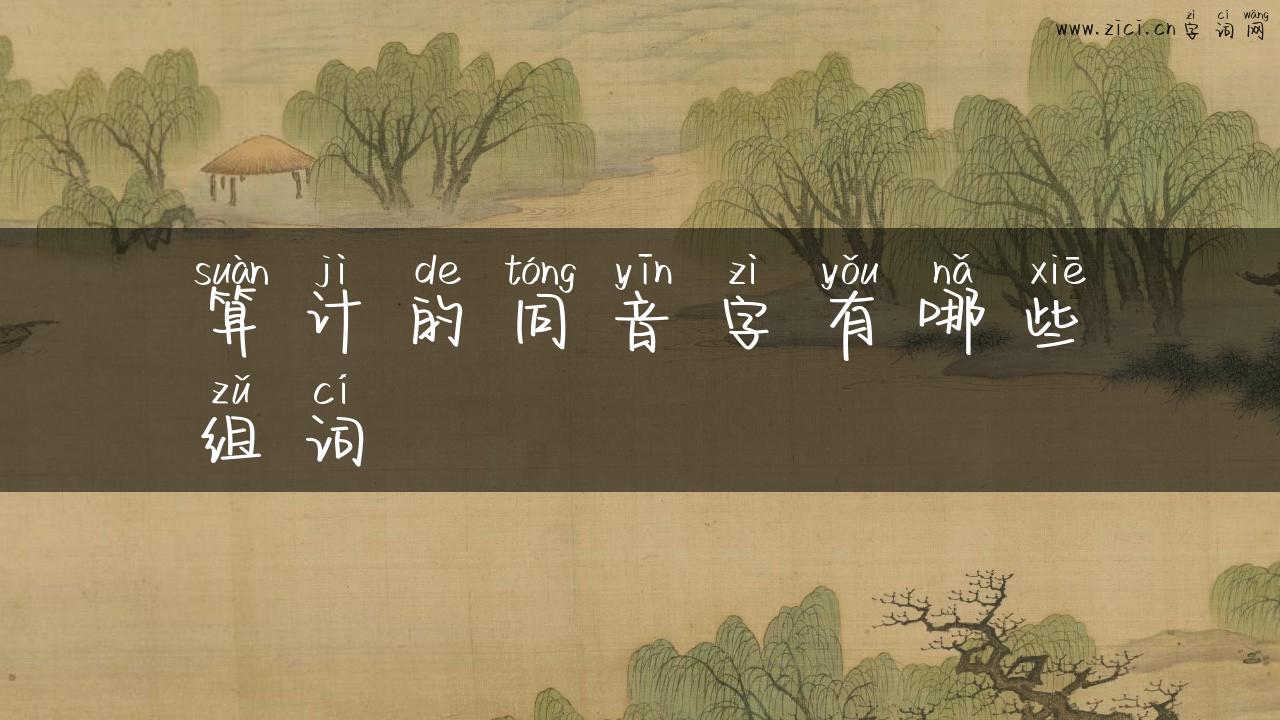 zì cí wǎng
www.zici.cn 字 词 网
suàn jì de tóng yīn zì yǒu nǎ xiē
算 计 的 同 音 字 有 哪 些
zǔ cí
组 词